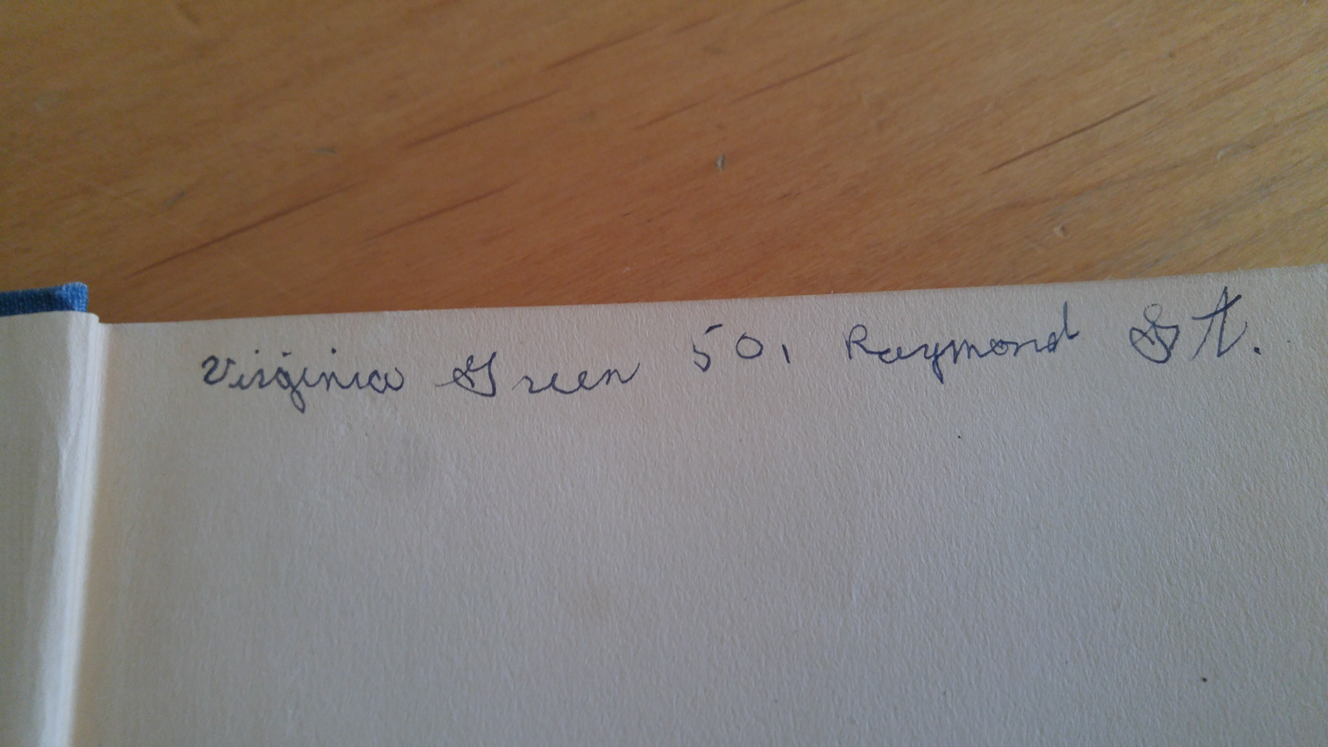 Virginia Green 50, Raymond St.